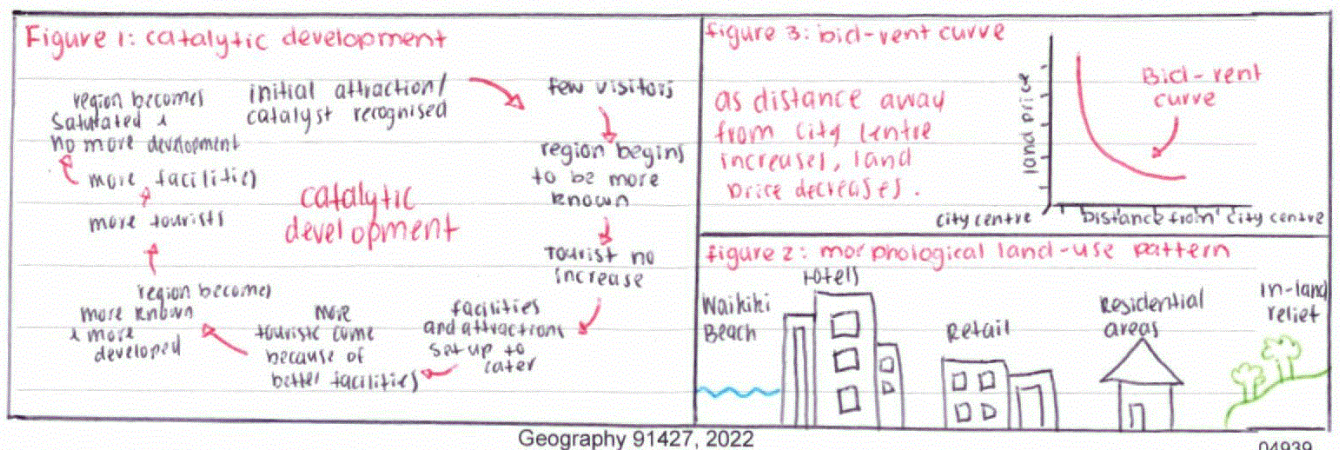 Figure 1: catalytic development
initial attraction/
catalyst recognised
few visitors
region begins
to be more
known
Tourist no
increase
facilities
and attractions
set up to
cater
more
tourists come
because of
better facilities
region becomes
more known
& more
developed
more tourists
more facilities
region becomes
saturated &
no more development
catalytic
development
figure 3: bid-rent curve
as distance away
from city centre
increases, land
price decreases.
land price
Bid-rent
curve
city centre
Distance from city centre
figure 2: morphological land-use pattern
Waikiki
Beach
Hotels
Retail
Residential
areas
in-land
relief
Geography 91427, 2022
04939